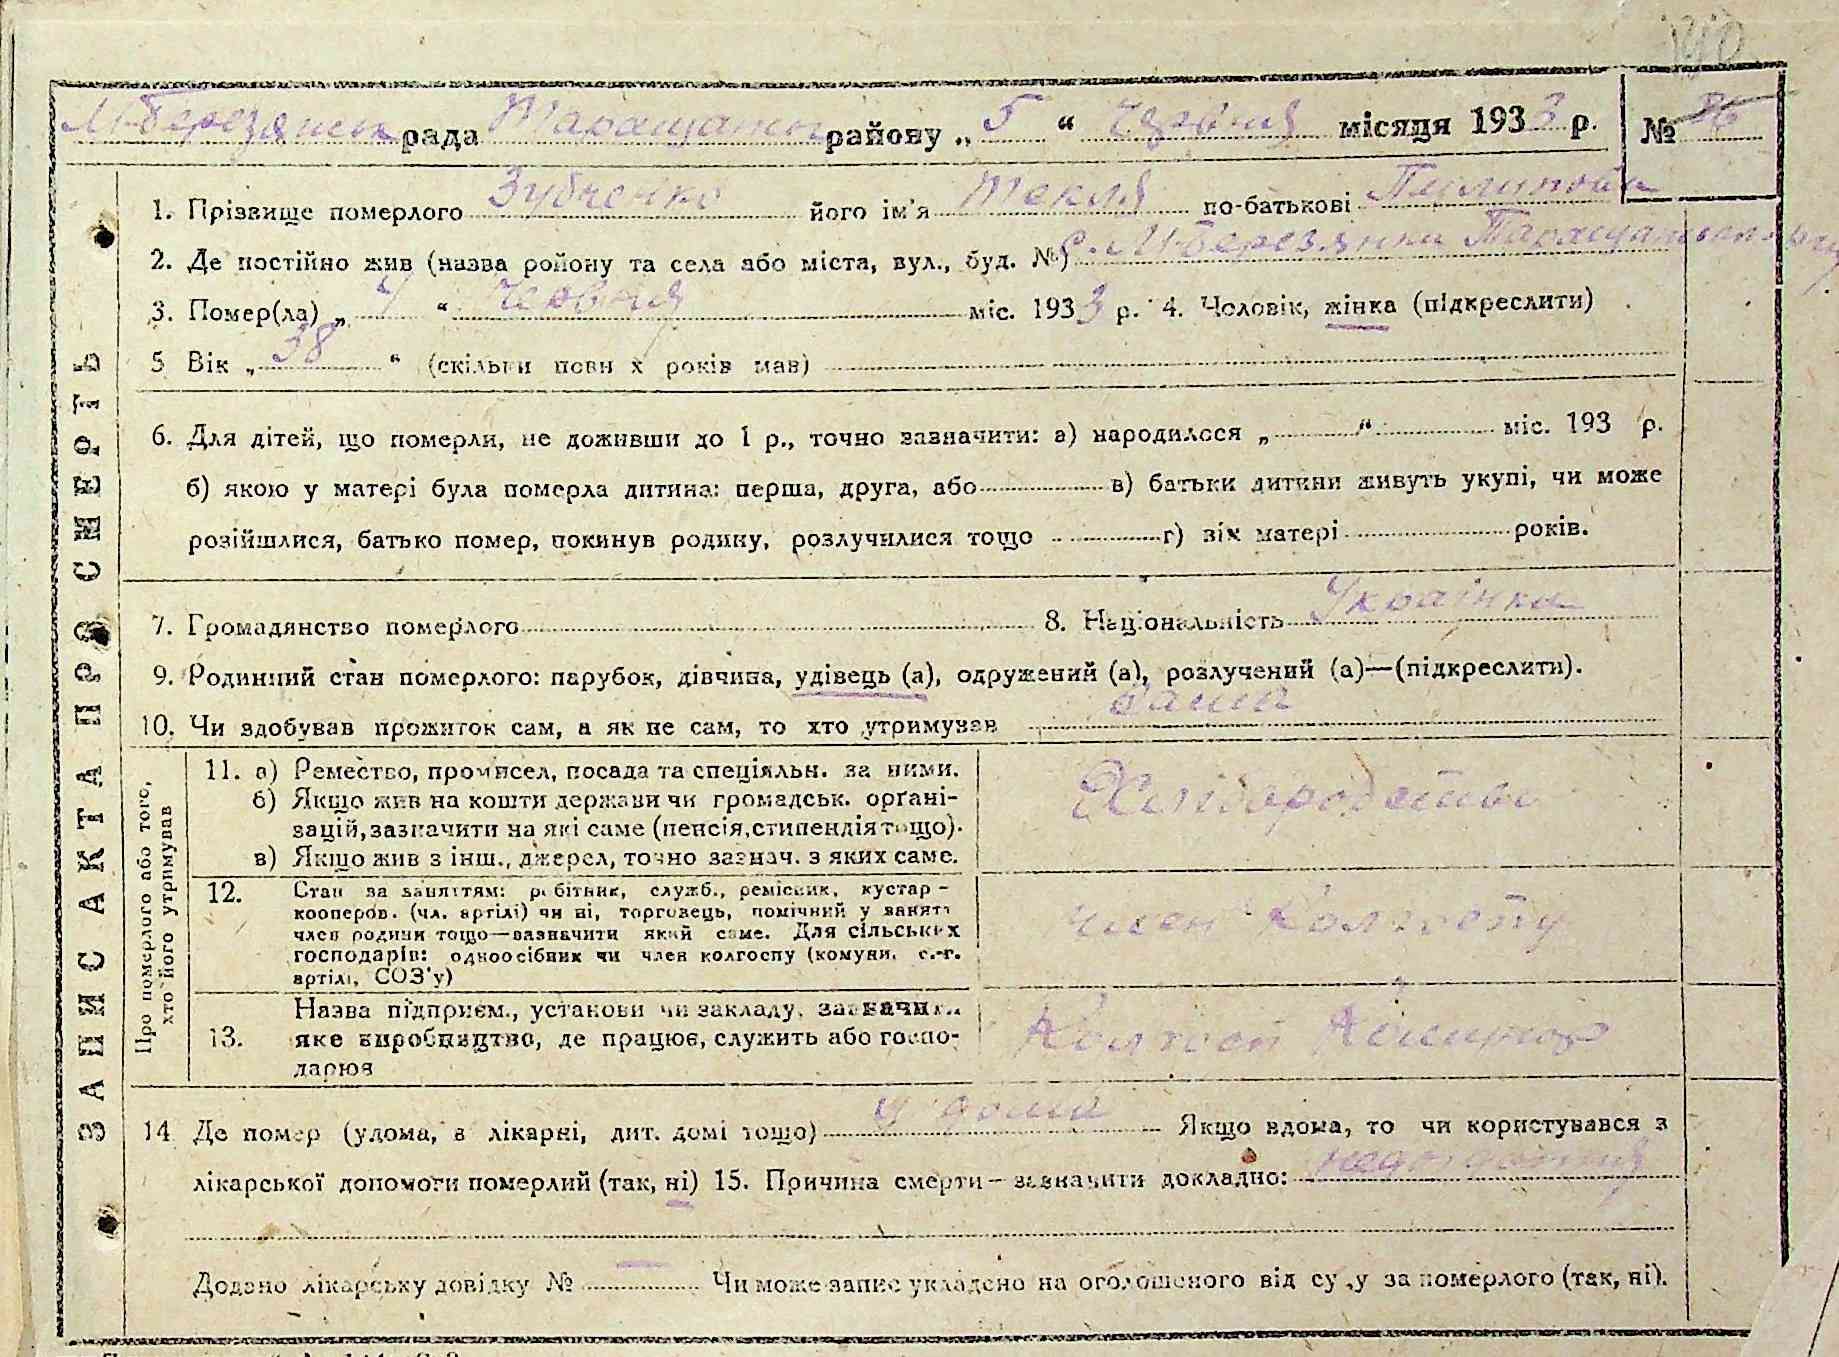 140
М-Березянськ рада Таращансь району „ 5 “ Червня місяця 1933 р. № 86
1. Прізвище померлого Зубченко його ім'я Текля по-батькові Пилиповна
2. Де постійно жив (назва району та села або міста, вул., буд. № с. М-Березянка Таращанськ
3. Помер(ла) „ 4 “ Червня міс. 1933 р. 4. Чоловік, жінка (підкреслити)
5 Вік „ 38 “ (скільки повн х років мав)
6. Для дітей, що померли, не доживши до 1 р., точно зазначити: а) народилося „ “ міс. 193 р.
б) якою у матері була померла дитина: перша, друга, або в) батьки дитини живуть укупі, чи може
розійшлися, батько помер, покинув родину, розлучилися тощо г) вік матері років.
7. Громадянство померлого 8. Національність Українка
9. Родинний стан померлого: парубок, дівчина, удівець (а), одружений (а), розлучений (а)—(підкреслити).
10. Чи здобував прожиток сам, а як не сам, то хто утримував сама
ЗАПИС АКТА ПРО СМЕРТЬ
Про померлого або того,
хто його утримував
11. а) Ремество, промисел, посада та спеціяльн. за ними.
б) Якщо жив на кошти держави чи громадськ. органі-
зацій, зазначити на які саме (пенсія, стипендія тощо).
в) Якщо жив з інш., джерел, точно зазнач. з яких саме.
Хліборобство
12. Стан за заняттям: робітник, служб., ремісник, кустар-
кооперов. (чл. артілі) чи ні, торговець, помічний у занятт
член родини тощо—зазначити який саме. Для сільських
господарів: одноосібник чи член колгоспу (комуни, с.-г.
артілі, СОЗ'у)
член Колгоспу
13. Назва підприєм., установи чи закладу, зазначити
яке виробництво, де працює, служить або госпо-
дарює
Колгосп
14 Де помер (удома, в лікарні, дит. домі тощо) у дома Якщо вдома, то чи користувався з
лікарської допомоги померлий (так, ні) 15. Причина смерти – зазначити докладно: недоїдання
Додано лікарську довідку № — Чи може запис укладено на оголошеного від суду за померлого (так, ні).